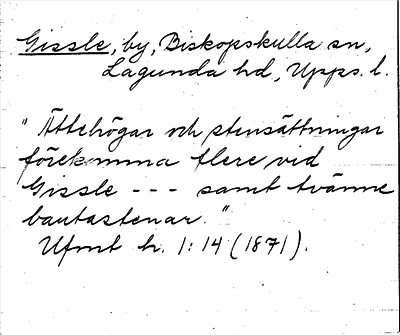 Gissle, by, Biskopskulla sn,
Lagunda hd, Upps. l.
"Ättehögar och stensättningar
förekomma flere vid
Gissle --- samt tvänne
bautastenar."
Ufmt h. 1:14 (1871).